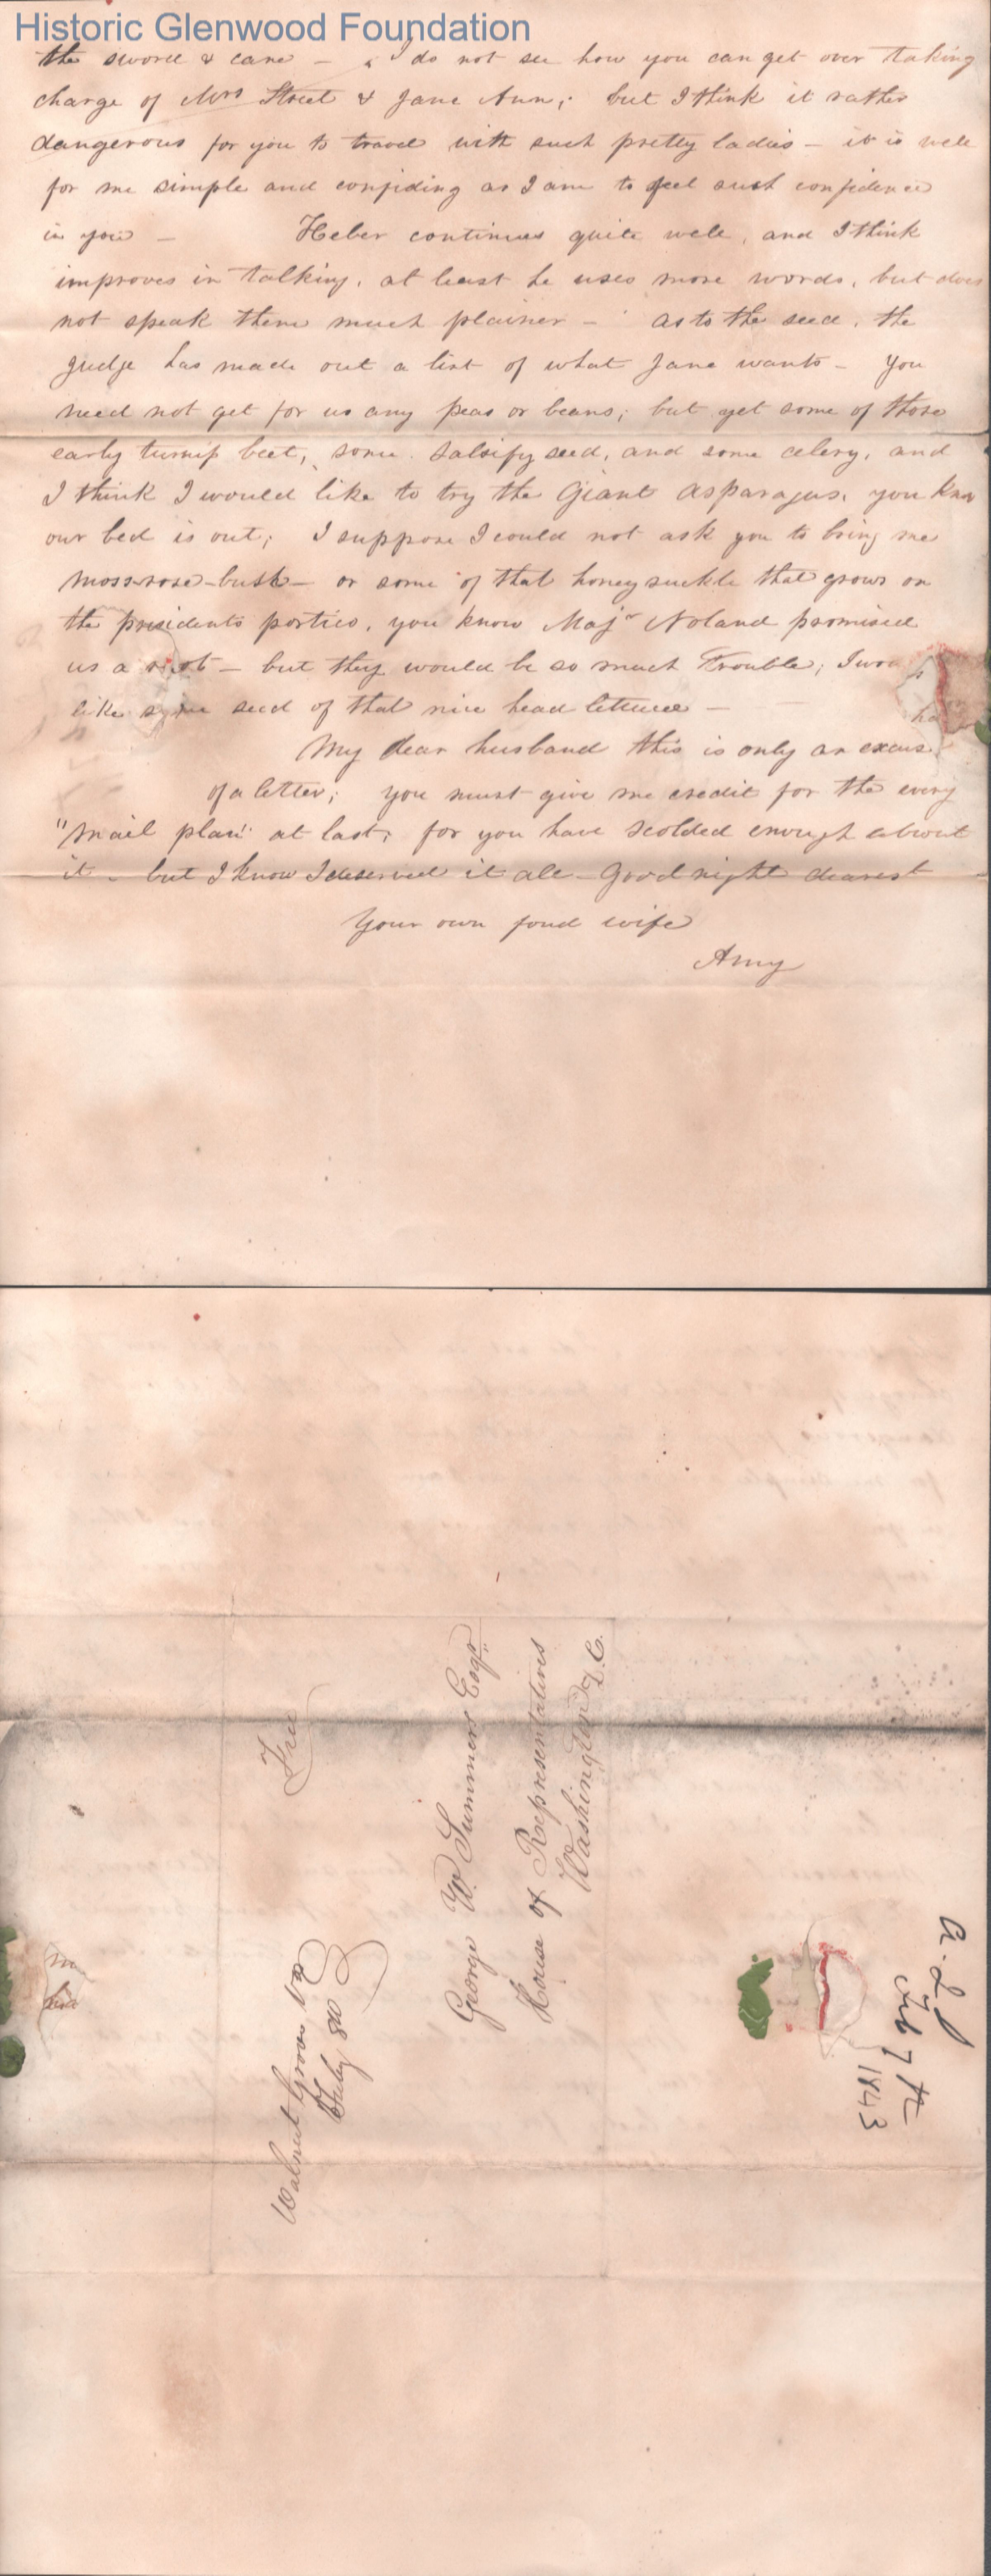 Historic Glenwood Foundation
the sword & cane — I do not see how you can get over taking
charge of Mrs Street & Jane Ann; but I think it rather
dangerous for you to travel with such pretty ladies — it is well
for me simple and confiding as I am to feel such confidence
in you — Heber continues quite well, and I think
improves in talking, at least he uses more words, but does
not speak them much plainer — as to the seed, the
judge has made out a list of what Jane wants — You
need not get for us any peas or beans; but get some of those
early turnip beet, some salsify seed, and some celery, and
I think I would like to try the Giant asparagus, you know
our bed is out; I suppose I could not ask you to bring me
moss-rose-bush — or some of that honeysuckle that grows on
the presidents portico, you know Majr Noland promised
us a root — but they would be so much trouble; I wou
like some seed of that nice head lettuce —
My dear husband this is only an excuse
of a letter; you must give me credit for the every
"mail plan" at last, for you have scolded enough about
it — but I know I deserved it all — Good night dearest
Your own fond wife
Amy
Free
George W. Summers Esqr
House of Representatives
Washington D.C.
Walnut Grove Va
Feby 8th
A. L S
Feb 7th
1843